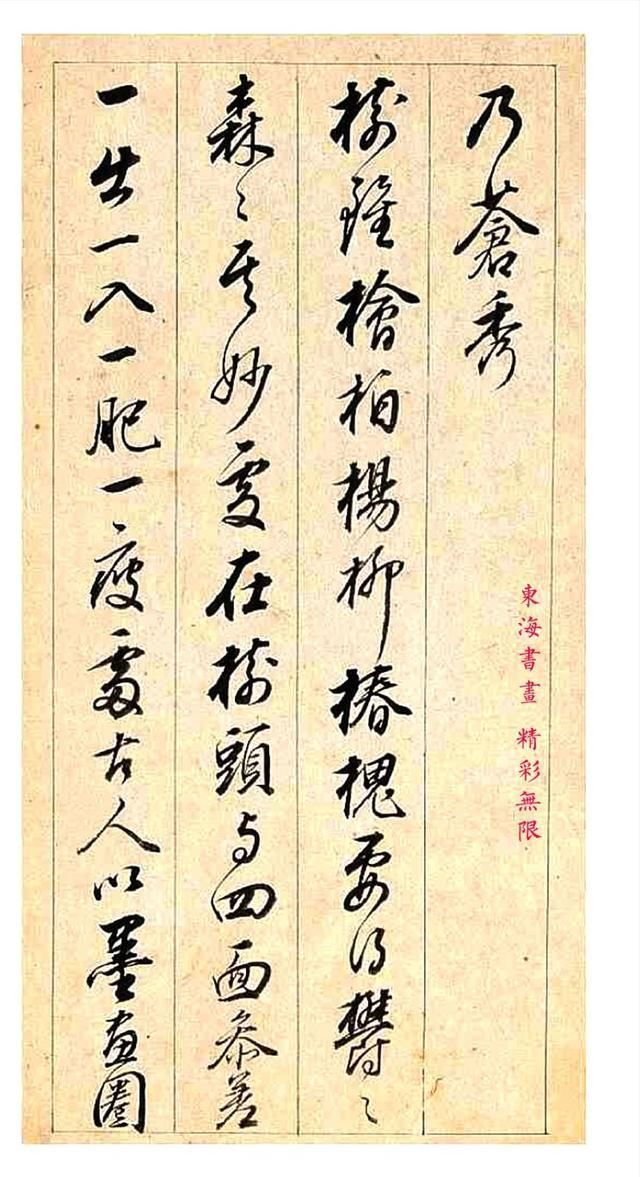 乃蒼秀
樹雖檜柏楊柳椿槐要得鬱〻
森〻其妙處在樹頭与四面參差
一出一入一肥一瘦處古人以墨畫圈
東海書畫 精彩無限